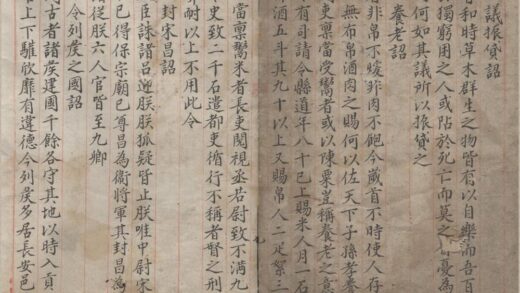 議振貸詔
春和時草木群生之物皆有以自樂而吾百
獨窮困之人或阽於死亡而莫之省憂為
何如其議所以振貸之
養老詔
者非帛不煖非肉不飽今歲首不時使人存
無布帛酒肉之賜何以佐天下子孫孝養
吏稟當受鬻者或以陳粟豈稱養老之意
有司請令縣道年八十已上賜米人月一石
酒五斗其九十以上又賜帛人二疋絮三
當稟鬻米者長吏閱視丞若尉致不滿九
史致二千石遣都吏循行不稱者督之刑
耐以上不用此令
封宋昌詔
臣誅諸呂迎朕朕狐疑皆止朕唯中尉宋
已得保宗廟已尊昌為衛將軍其封昌為
諸從朕六人官皆至九卿
令列侯之國詔
古者諸侯建國千餘各守其地以時入貢
上下驩欣靡有違德今列侯多居長安邑